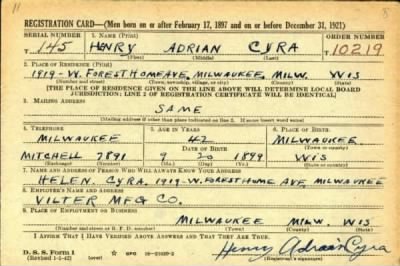 REGISTRATION CARD—(Men born on or after February 17, 1897 and on or before December 31, 1921)
SERIAL NUMBER 1. NAME (Print) ORDER NUMBER
T 145 HENRY ADRIAN CYRA 10219
(First) (Middle) (Last)
2. PLACE OF RESIDENCE (Print)
1919-W. FOREST HOME AVE, MILWAUKEE, MILW. WIS
(Number and street) (Town, township, village, or city) (County) (State)
[THE PLACE OF RESIDENCE GIVEN ON THE LINE ABOVE WILL DETERMINE LOCAL BOARD
JURISDICTION; LINE 2 OF REGISTRATION CERTIFICATE WILL BE IDENTICAL]
3. MAILING ADDRESS
SAME
[Mailing address if other than place indicated on line 2. If same insert word same]
4. TELEPHONE 5. AGE IN YEARS 6. PLACE OF BIRTH
MILWAUKEE 42 MILWAUKEE
DATE OF BIRTH (Town or county)
MITCHELL 7891 9 20 1899 WIS
(Exchange) (Number) (Mo.) (Day) (Yr.) (State or country)
7. NAME AND ADDRESS OF PERSON WHO WILL ALWAYS KNOW YOUR ADDRESS
HELEN. CYRA. 1919-W. FOREST HOME AVE, MILWAUKEE
8. EMPLOYER'S NAME AND ADDRESS
VILTER MFG CO.
9. PLACE OF EMPLOYMENT OR BUSINESS
MILWAUKEE MILW. WIS
(Number and street or R. F. D. number) (Town) (County) (State)
I AFFIRM THAT I HAVE VERIFIED ABOVE ANSWERS AND THAT THEY ARE TRUE.
D. S. S. Form 1 GPO Henry Adrian Cyra
(Revised 1-1-42) (over) (Registrant's signature)